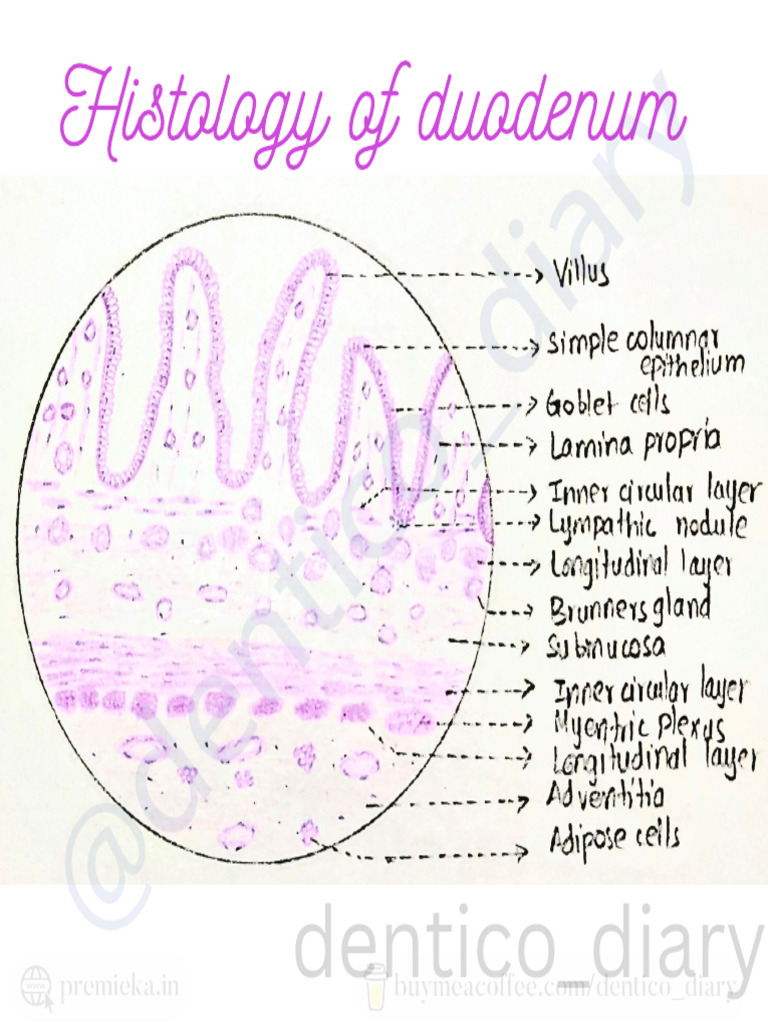 Histology of duodenum
Villus
simple columnar
epithelium
Goblet cells
Lamina propria
Inner circular layer
Lympathic nodule
Longitudinal layer
Brunners gland
Submucosa
Inner circular layer
Myentric plexus
Longitudinal layer
Adventitia
Adipose cells
@dentico_diary
dentico_diary
www
premieka.in
buymeacoffee.com/dentico_diary